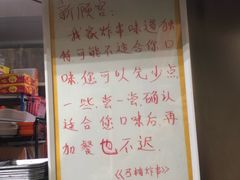 新顾客:
我家炸串味道独
特可能不适合您口
味您可以先少点
一些,尝一尝确认
适合您口味后,再
加餐也不迟.
炸串》